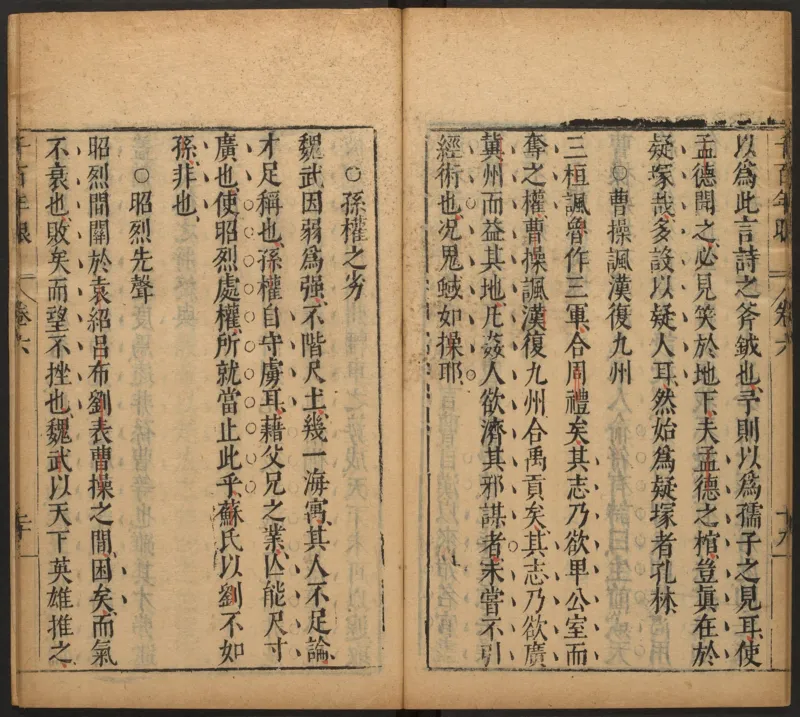 以為此言詩之斧鉞也予則以為孺子之見耳使
孟德聞之必見笑於地下夫孟德之棺豈眞在於
疑塚哉多設以疑人耳然始為疑塚者孔林
○曹操諷漢復九州
三桓諷魯作三軍合周禮矣其志乃欲卑公室而
奪之權曹操諷漢復九州合禹貢矣其志乃欲廣
冀州而益其地凡姦人欲濟其邪謀者未嘗不引
經術也况鬼蜮如操耶
千百年眼
卷六
十九
○孫權之劣
魏武因弱為强不階尺土幾一海㝢其人不足論
才足稱也孫權自守虜耳藉父兄之業亾能尺寸
廣也使昭烈處權所就當止此乎蘇氏以劉不如
孫非也
○昭烈先聲
昭烈間關於袁紹呂布劉表曹操之間困矣而氣
不衰也敗矣而望不挫也魏武以天下英雄推之
千百年眼
卷六